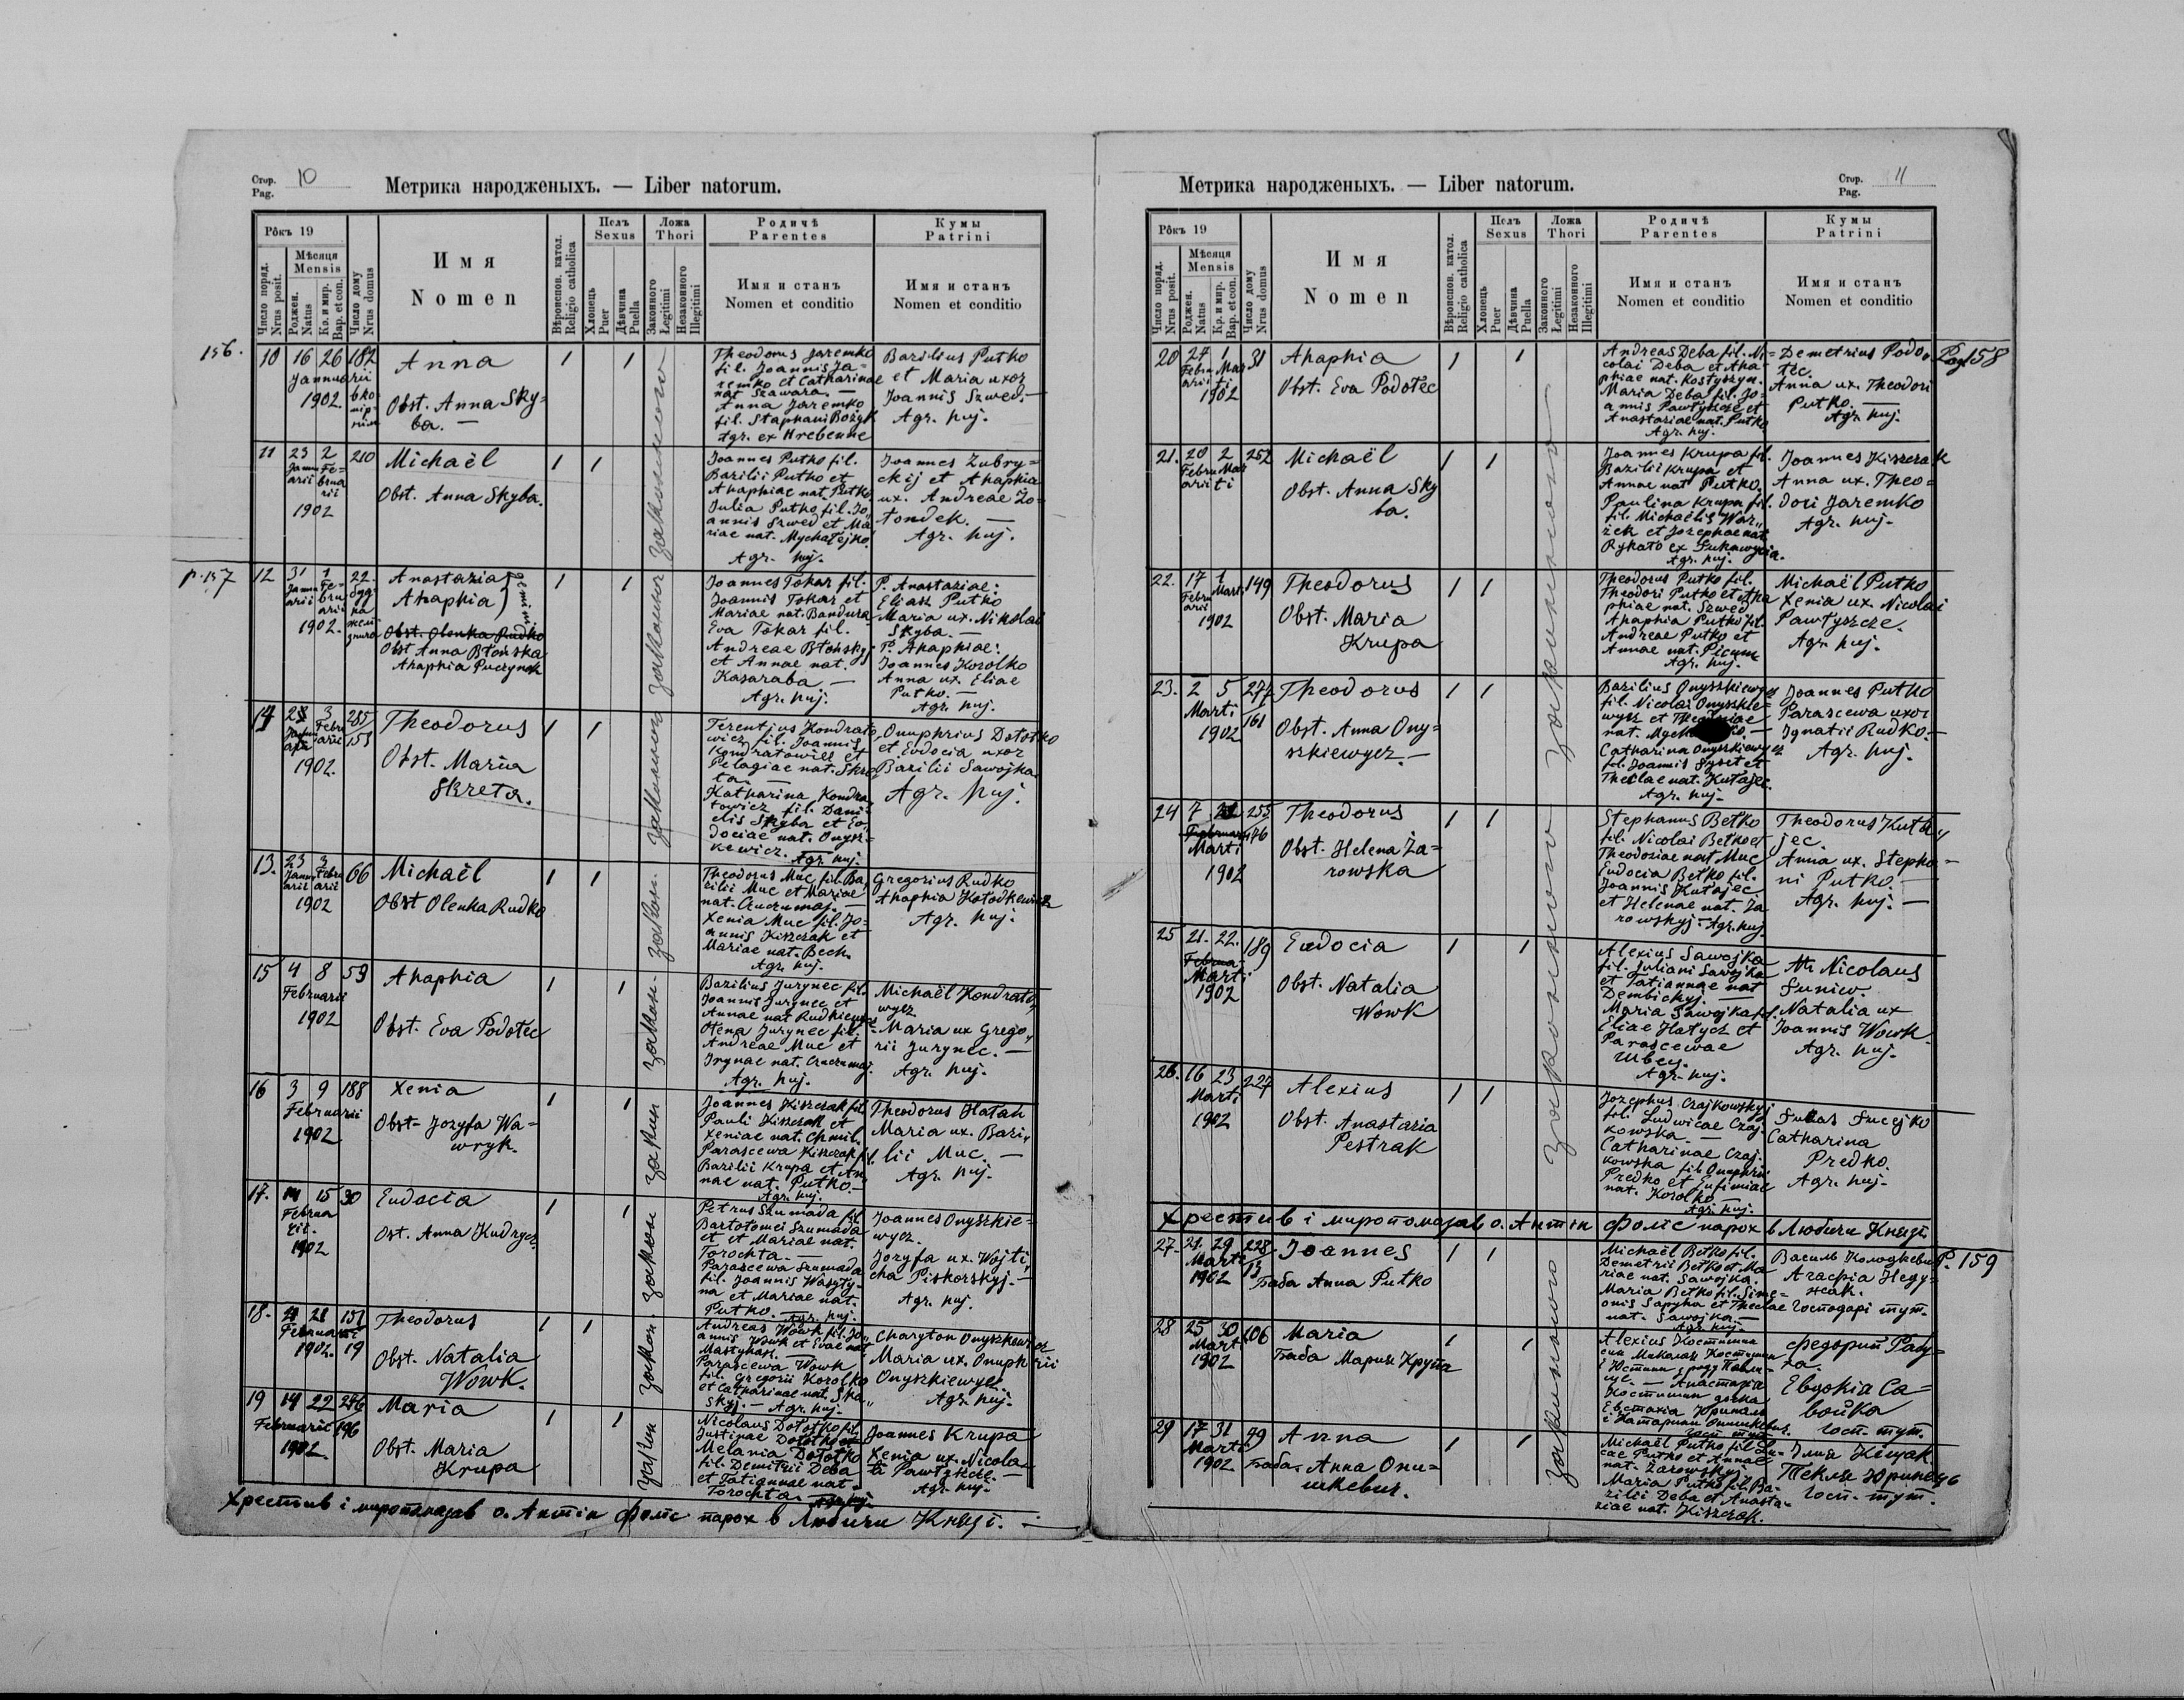 Стор. Pag. 10
Метрика народженыхъ. — Liber natorum.
Рôкъ 19
Число поряд. Nrus posit.
Мѣсяця Mensis
Роджен. Natus
Кр. и мир. Bap. et con.
Число дому Nrus domus
Имя
Nomen
Вѣроиспов. катол. Religio catholica
Полъ Sexus
Хлопець Puer
Дѣвчина Puella
Ложа Thori
Законного Legitimi
Незаконного Illegitimi
Родичѣ
Parentes
Имя и станъ
Nomen et conditio
Кумы
Patrini
Имя и станъ
Nomen et conditio
156.
10 16 26 182
Januarii
1902.
Anna
Obst. Anna Sky=
ba. —
Theodorus Jaremko
fil. Joannis Ja=
remko et Catharinae
nat Szawara.
Anna Jaremko
fil. Stephani Bożyk
Agr. ex Hrebenne
Bazilius Putko
et Maria uxor
Joannis Szwed. —
Agr. huj.
11 23 2 210
Januarii Februarii
1902
Michaël
Obst. Anna Skyba.
Joannes Putko fil.
Bazilii Putko et
Ahaphiae nat. Putko.
Julia Putko fil. Jo=
annis Szwed et Ma
riae nat. Mychałejko.
Agr. huj.
Joannes Zubry=
ckij et Ahaphia
ux. Andreae Żo=
łondek. —
Agr. huj.
p. 157
12 31 1 22.
Januarii Februarii
1902.
Anastazia
Ahaphia
gemini
Obst. Olenka Rudko
Obst Anna Błońska
Ahaphia Puczynek
Joannes Tokar fil.
Joannis Tokar et
Mariae nat. Bandura
Eva Tokar fil.
Andreae Błońskyj
et Annae nat.
Kasaraba —
Agr. huj.
P. Anastaziae:
Eliasz Putko
Maria ux. Nikolai
Skyba. —
P. Ahaphiae:
Joannes Korolko
Anna ux Eliae
Putko. —
Agr. huj.
14 3 285
Februarii 153
1902.
Theodorus
Obst. Maria
Skreta.
Terentius Kondrato
wicz fil. Joannis
Kondratowicz et
Pelagiae nat. Skre
ta. —
Katharina Kondra
towicz fil. Dani=
elis Skyba et Eu
dociae nat. Onysz=
kewicz. Agr. huj.
Onuphrius Dołotko
et Eudocia uxor
Bazilii Sawojka
Agr. huj.
13. 23 3 66
Januarii Februarii
1902
Michaël
Obst Olenka Rudko
Theodorus Muc fil. Ba
zilii Muc et Mariae
nat. Czuczumaj. —
Xenia Muc fil. Jo=
annis Kiszczak et
Mariae nat. Bech.
Agr. huj.
Gregorius Rudko
Ahaphia Kołodkewicz
Agr. huj.
15 4 8 59
Februarii
1902
Ahaphia
Obst. Eva Podołec
Bazilius Jurynec fil.
Joannis Jurynec et
Annae nat Rudkiewicz
Ołena Jurynec fil.
Andreae Muc et
Irynae nat. Czuczumaj.
Agr. huj.
Michaël Kondrato
wycz
Maria ux Grego=
rii Jurynec. —
Agr. huj.
16 3 9 188
Februarii
1902
Xenia
Obst. Jozyfa Wa=
wryk.
Joannes Kiszczak fil.
Pauli Kiszczak et
Xeniae nat. Chmil.
Parascewa Kiszczak f.
Bazilii Krupa et An
nae nat. Putko. —
Agr. huj.
Theodorus Hałan
Maria ux. Bazi=
lii Muc. —
Agr. huj.
17. 14 15 30
Februarii.
1902
Eudocia
Ost. Anna Kudrycz.
Petrus Szumada fil.
Bartołomei Szumada
et et Mariae nat.
Torochta. —
Parascewa Szumada
fil. Joannis Wasyły=
na et Mariae nat.
Putko. Agr. huj.
Joannes Onyszkie=
wycz.
Jozyfa ux. Wojti
cha Piskorskyj. —
Agr. huj.
18. 21 151
Februarii
1902. 19
Theodorus
Obst. Natalia
Wowk.
Andreas Wowk fil. Jo=
annis Wowk et Evae nat
Mastyhasz.
Parascewa Wowk
fil. Gregorii Korolko
et Catharinae nat. Ska=
skyj. — Agr. huj.
Charyton Onyszkewycz
Maria ux. Onuphrii
Onyszkiewycz.
Agr. huj.
19 14 22 286
Februarii 196
1902.
Maria
Obst. Maria
Krupa
Nicolaus Dołotko fil.
Justinae Dołotko
Melania Dołotko
fil. Demitrii Deba
et Tatiannae nat.
Torochta. Agr. huj.
Joannes Krupa
Xenia ux. Nicola=
ii Pawłyszcze. —
Agr. huj.
закон.
Хрестив і миропомазав о. Антін Фолїс парох в Любичи Князї. —
Метрика народженыхъ. — Liber natorum.
Стор. Pag. 11
Рôкъ 19
Число поряд. Nrus posit.
Мѣсяця Mensis
Роджен. Natus
Кр. и мир. Bap. et con.
Число дому Nrus domus
Имя
Nomen
Вѣроиспов. катол. Religio catholica
Полъ Sexus
Хлопець Puer
Дѣвчина Puella
Ложа Thori
Законного Legitimi
Незаконного Illegitimi
Родичѣ
Parentes
Имя и станъ
Nomen et conditio
Кумы
Patrini
Имя и станъ
Nomen et conditio
20 27 1 31
Februarii Marti
1902
Ahaphia
Obst. Eva Podołec
Andreas Deba fil. Ni=
colai Deba et Aha=
phiae nat. Kostyszyn.
Maria Deba fil. Jo=
annis Pawłyszcze et
Anastaziae nat. Putko
Agr. huj.
Demetrius Podo=
łec.
Anna ux. Theodori
Putko. —
Agr. huj.
Pag 158
21. 20 2 252
Februarii Marti
Michaël
Obst. Anna Sky
ba.
Joannes Krupa fil.
Bazilii Krupa et
Annae nat Putko.
Paulina Krupa fil.
fil. Michaëlis War=
żek et Jozephae nat.
Rykało ex
Agr. huj.
Joannes Kiszczak
Anna ux. Theo=
dori Jaremko
Agr. huj.
22. 17 1 149
Februarii Marti
1902
Theodorus
Obst. Maria
Krupa
Theodorus Putko fil.
Theodori Putko et Aha
phiae nat. Szwed
Ahaphia Putko fil.
Andreae Putko et
Annae nat. Picum
Agr. huj.
Michaël Putko
Xenia ux. Nicolai
Pawłyszcze.
Agr. huj.
23. 2 5 277
Marti 161
1902
Theodorus
Obst. Anna Ony=
szkiewycz. —
Bazilius Onyszkiewycz
fil. Nicolai Onyszkie=
wycz et
nat.
Catharina Onyszkiewycz
fil. Joannis et
Theclae nat. Kutajec.
Agr. huj.
Joannes Putko
Parascewa uxor
Ignatii Rudko. —
Agr. huj.
24 7 255
Februarii 176
Marti
1902
Theodorus
Obst. Helena Ża=
rowska
Stephanus Bełko
fil. Nicolai Bełko et
Theodoziae nat Muc
Eudocia Bełko fil.
Joannis Kutajec
et Helenae nat. Ża
rowskyj. — Agr. huj
Theodorus Kuta=
jec.
Anna ux. Stepha=
ni Putko. —
Agr. huj. —
25 21. 22. 189
Februa
Marti
1902
Eudocia
Obst. Natalia
Wowk
Alexius Sawojka
fil. Juliani Sawojka
et Tatiannae nat
Dembickyj. —
Maria Sawojka f.
Eliae Hałycz et
Parascewae
Швец.
Agr. huj.
Nicolaus
Suniew.
Natalia ux
Joannis Wowk
Agr. huj.
26. 16 23 227
Marti
1902
Alexius
Obst. Anastazia
Pestrak
Jozephus Czajkowskyj
fil. Ludwicae Czaj=
kowska. —
Catharinae Czaj=
kowska fil. Onuphrii
Predko et Eufimiae
nat. Korolko —
Agr. huj.
Lukas Lucejko
Catharina
Predko.
Agr. huj.
Хрестив і миропомазав о. Антін Фолїс парох в Любичи Князї.
27. 21. 29 228.
Marti 13
1902
Joannes
Баба Anna Putko
Michaël Bełko fil.
Demetrii Bełko et Ma
riae nat. Sawojka.
Maria Bełko fil. Sime=
onis Sapyha et Theclae
nat. Sawojka. —
Agr. huj.
Василь Колодкевич
Агафія Неду=
жак.
Господарі тут.
P. 159
28 25 30 106
Marti
1902
Maria
Баба Мария Крупа
Alexius Костишин
син Миколая Костишин
і Юстини з роду Павли=
щє. — Анастазія
Костишин дочка
Евстахія Юринец
і Катарини Онишкевич.
госп. тут.
Федорин Рабу=
ха.
Евдокія Са=
войка
госп. тут.
29 17 31 49
Marti
1902
Anna
Баба Анна Они=
шкевич.
Michaël Putko fil. Lu=
cae Putko et Annae
nat. Żarowskyj
Maria Putko fil. Ba=
zilii Deba et Anasta=
ziae nat. Kiszczak.
Ілия Кіщак
Текля Юринець
госп. тут.
законного